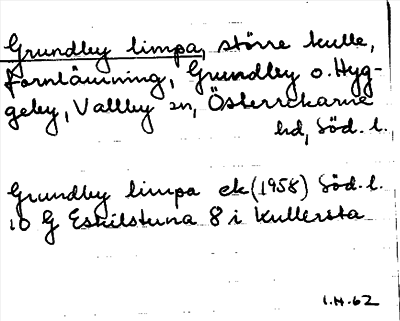 Grundby limpa, större kulle,
fornlämning, Grundby o. Hyg-
geby, Vallby sn, Österrekarne
hd, Söd. l.
Grundby limpa ek (1958) Söd. l.
10 G Eskilstuna 8 i Kullersta
1.H.62